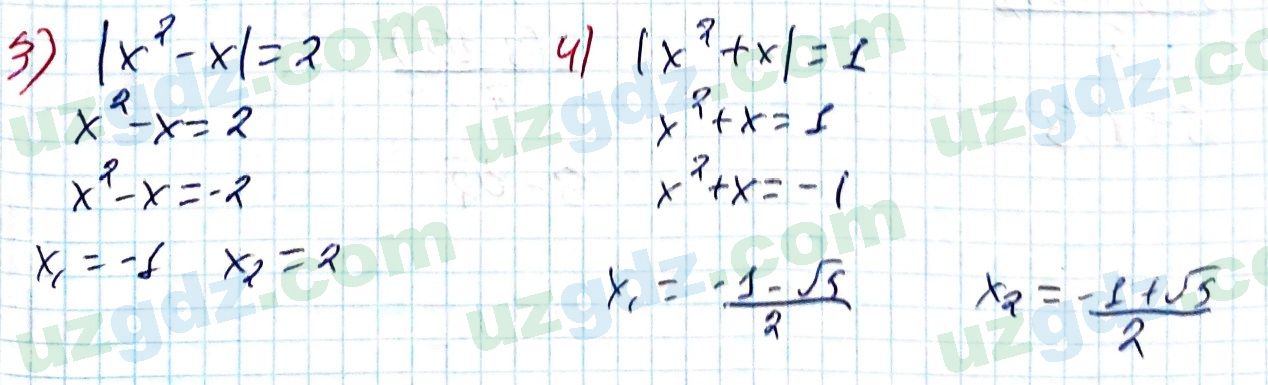 3) |x² - x| = 2
x² - x = 2
x² - x = -2
x₁ = -1 x₂ = 2
4) |x² + x| = 1
x² + x = 1
x² + x = -1
x₁ = (-1 - √5)/2 x₂ = (-1 + √5)/2
uzgdz.com
uzgdz.com
uzgdz.com
uzgdz.com
uzgdz.com
uzgdz.com